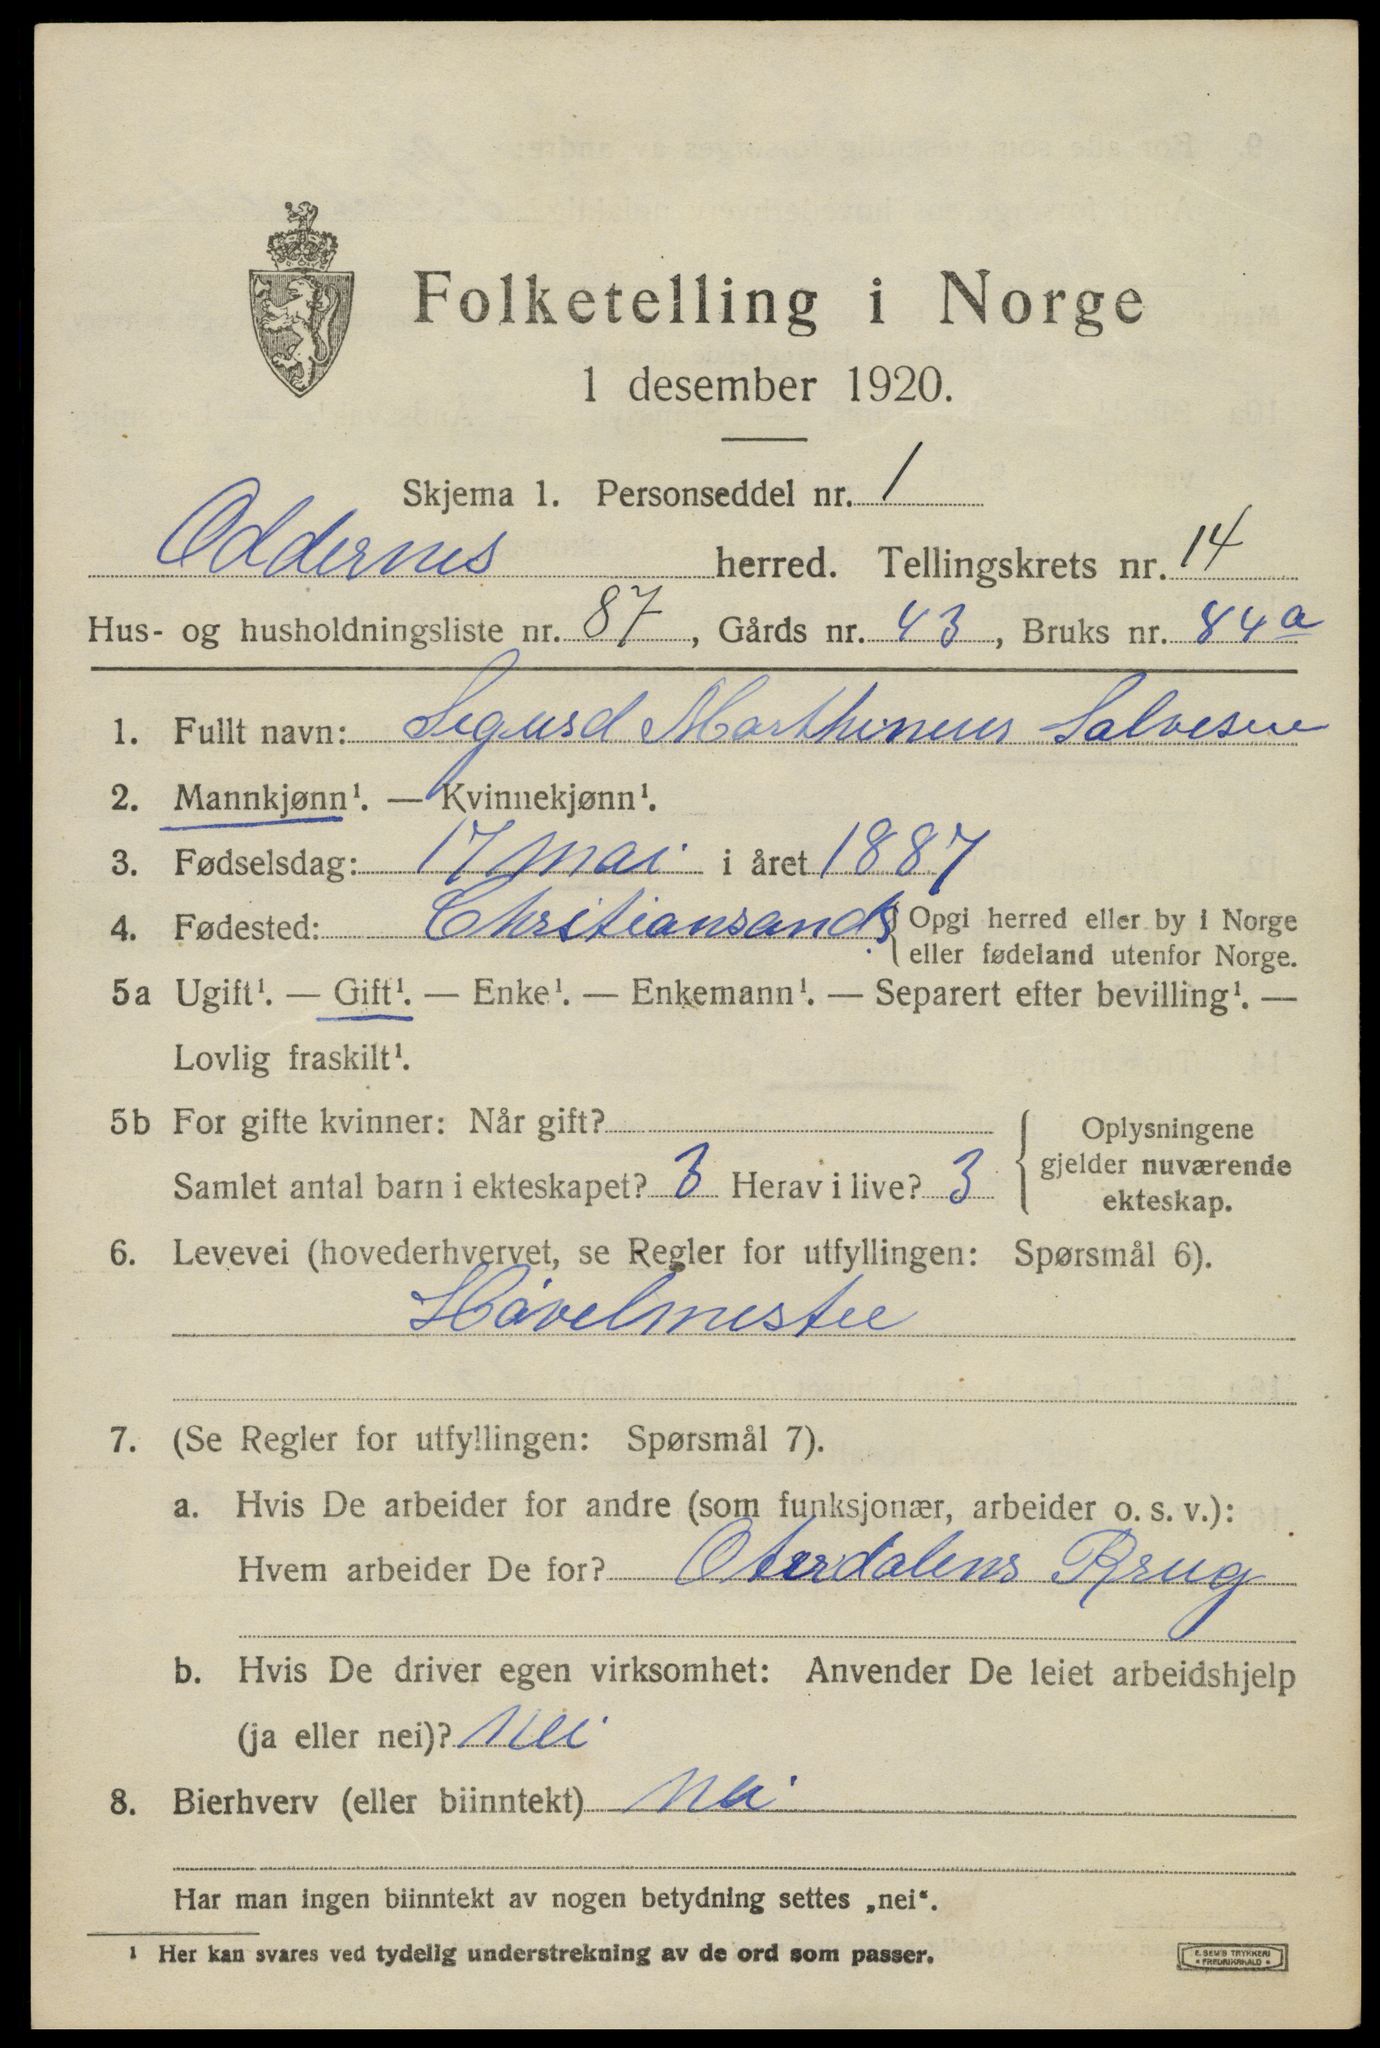 Folketelling i Norge
1 desember 1920.
Skjema 1. Personseddel nr. 1
Oddernes herred. Tellingskrets nr. 14
Hus- og husholdningsliste nr. 87, Gårds nr. 43, Bruks nr. 84a
1. Fullt navn: Sigurd Marthineus Salvesen
2. Mannkjønn¹. — Kvinnekjønn¹.
3. Fødselsdag: 17 mai i året 1887
4. Fødested: Christiansand S. { Opgi herred eller by i Norge
eller fødeland utenfor Norge.
5a Ugift¹. — Gift¹. — Enke¹. — Enkemann¹. — Separert efter bevilling¹. —
Lovlig fraskilt¹.
5b For gifte kvinner: Når gift?
Samlet antal barn i ekteskapet? 3 Herav i live? 3
{ Oplysningene
gjelder nuværende
ekteskap.
6. Levevei (hovederhvervet, se Regler for utfyllingen: Spørsmål 6).
Høvelmester
7. (Se Regler for utfyllingen: Spørsmål 7).
a. Hvis De arbeider for andre (som funksjonær, arbeider o. s. v.):
Hvem arbeider De for? Oterdalens Brug
b. Hvis De driver egen virksomhet: Anvender De leiet arbeidshjelp
(ja eller nei)? Nei
8. Bierhverv (eller biinntekt) Nei
Har man ingen biinntekt av nogen betydning settes „nei“.
¹ Her kan svares ved tydelig understrekning av de ord som passer.
E. SEM'S TRYKKERI
* FREDRIKSHALD *